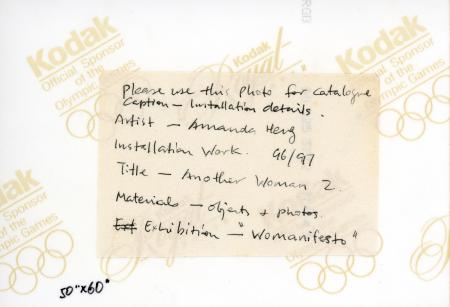 Kodak
Official Sponsor
of the
Olympic Games
Kodak
Royal
Please use this photo for catalogue
Caption – Installation details.
Artist – Amanda Heng
Installation Work. 96/97
Title – Another Woman 2.
Materials – objects + photos.
Exhibition – "Womanifesto"
Kodak
Official Sponsor
of the
Olympic Games
Kodak
Official Sponsor
of the
Olympic Games
50"x60"